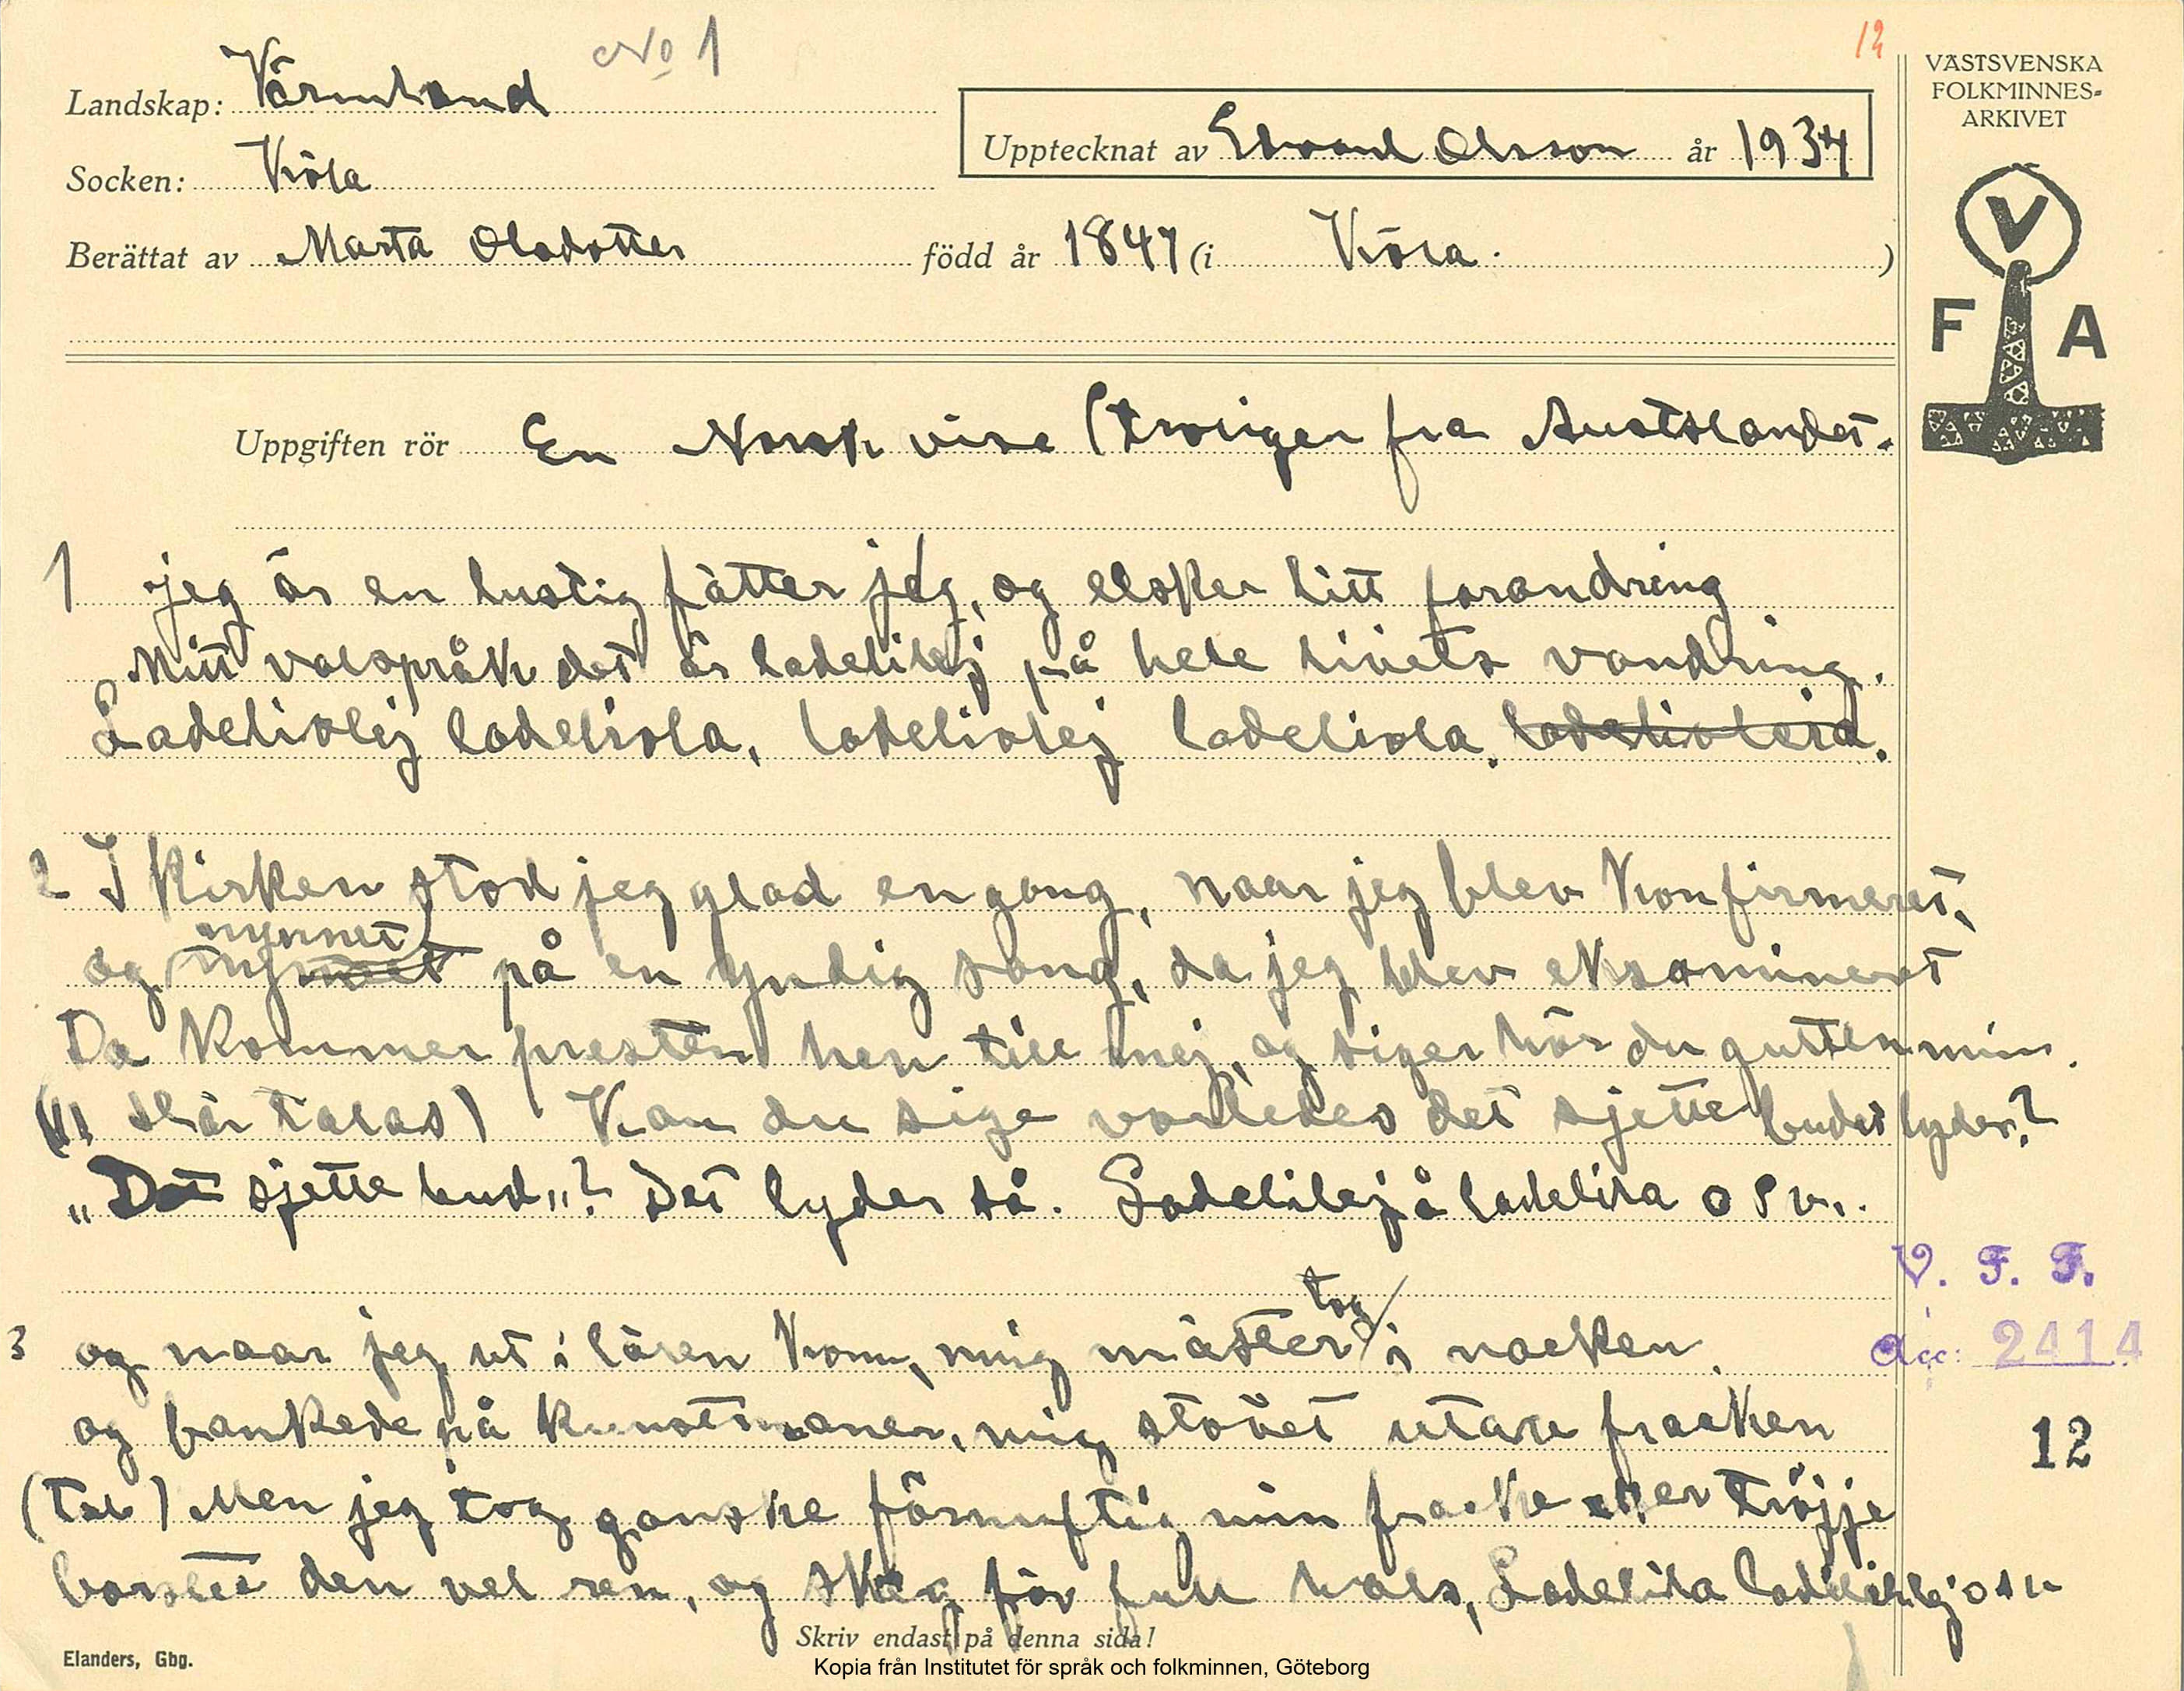 No 1
12
Landskap: Värmland
Socken: Köla
Upptecknat av Edvard Olsson år 1934
Berättat av Marta Olsdotter född år 1847 (i Köla. )
VÄSTSVENSKA
FOLKMINNES-
ARKIVET
V
F A
Uppgiften rör En Norsk vise (troligen fra Austslandet.
1 jeg är en lustig fätter jeg, og elsker litt forandring
Mitt valspråk det är ladelilej på hele livets vandring.
Ladeliolej ladeliola, ladeliolej ladeliola. ladelioleja.
2 I kirken stod jeg glad en gang, naar jeg blev konfirmeret,
nynnet
og på en yndig sang, da jeg blev eksamineret
Da kommer presten hen till mej, og siger hör du gutten min.
skär talas) Kan du sige vorledes det sjette budet lyder?
"Det sjette bud"? Det lyder så. Ladelilej å ladelila o s v..
tog
3 og naar jeg ut i lären kom, mig mäster i nacken.
og bankede på kunstmaner, mig stövet utav fracken
(tal) Men jeg tog ganske förnuftig min fracke eller tröjje
borstet den vel ren, og skreg för full hals, Ladelila ladelilej o s v
V. F. F.
acc: 2414
12
Skriv endast på denna sida!
Elanders, Gbg.
Kopia från Institutet för språk och folkminnen, Göteborg